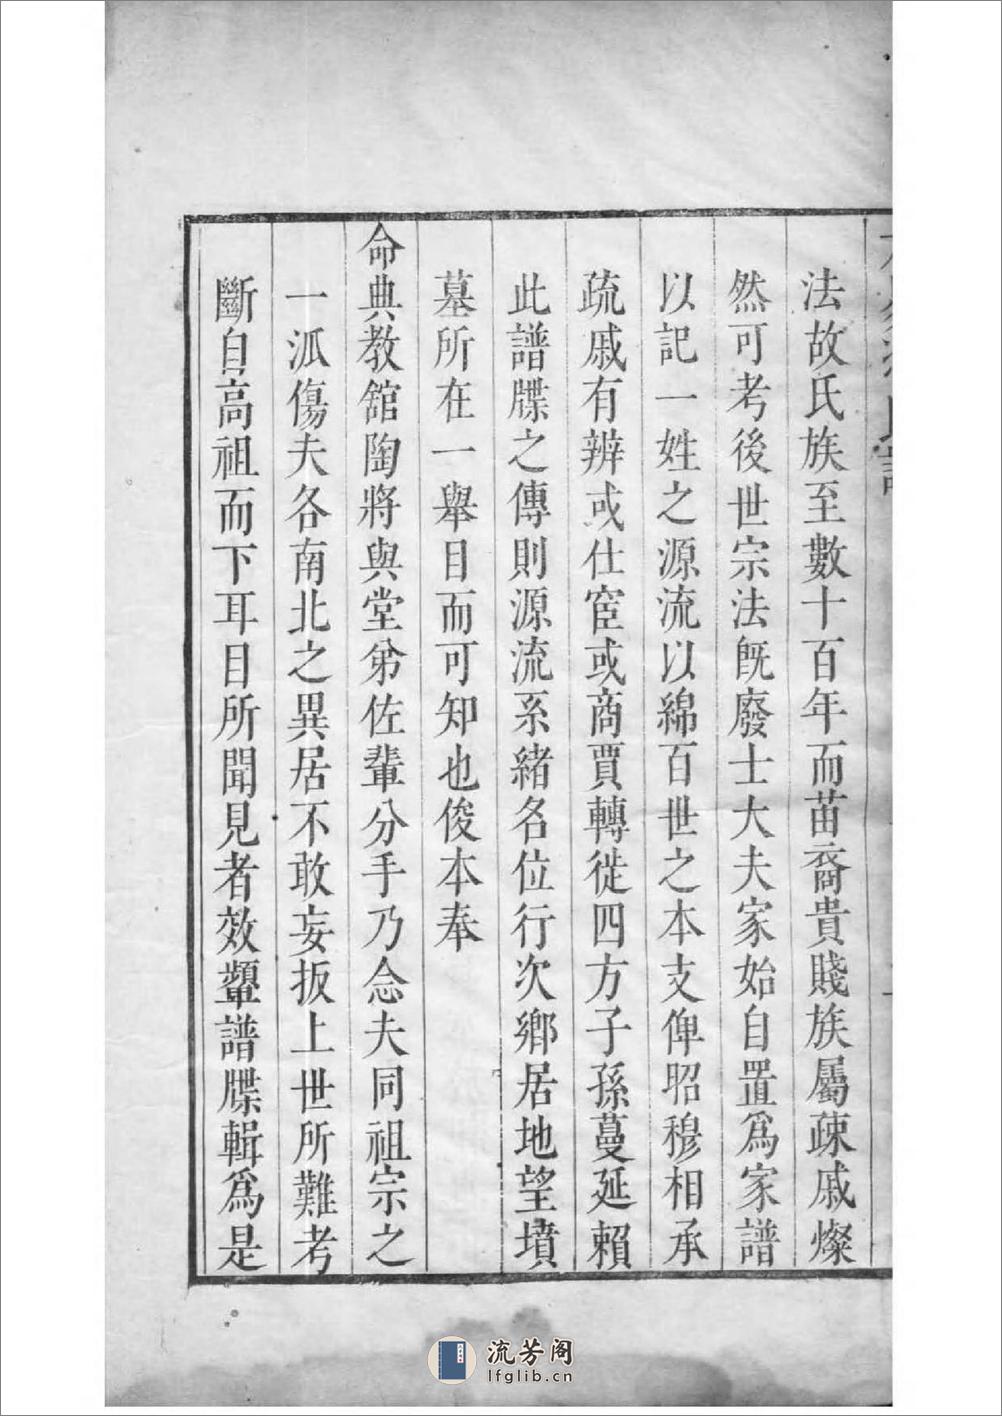 法故氏族至數十百年而苗裔貴賤族屬疎戚燦
然可考後世宗法旣廢士大夫家始自置爲家譜
以記一姓之源流以綿百世之本支俾昭穆相承
疏戚有辨或仕宦或商賈轉徙四方子孫蔓延賴
此譜牒之傳則源流系緒名位行次鄉居地望墳
墓所在一舉目而可知也俊本奉
命典教舘陶將與堂弟佐輩分手乃念夫同祖宗之
一派傷夫各南北之異居不敢妄扳上世所難考
斷自高祖而下耳目所聞見者效顰譜牒輯爲是
流芳阁
lfglib.cn